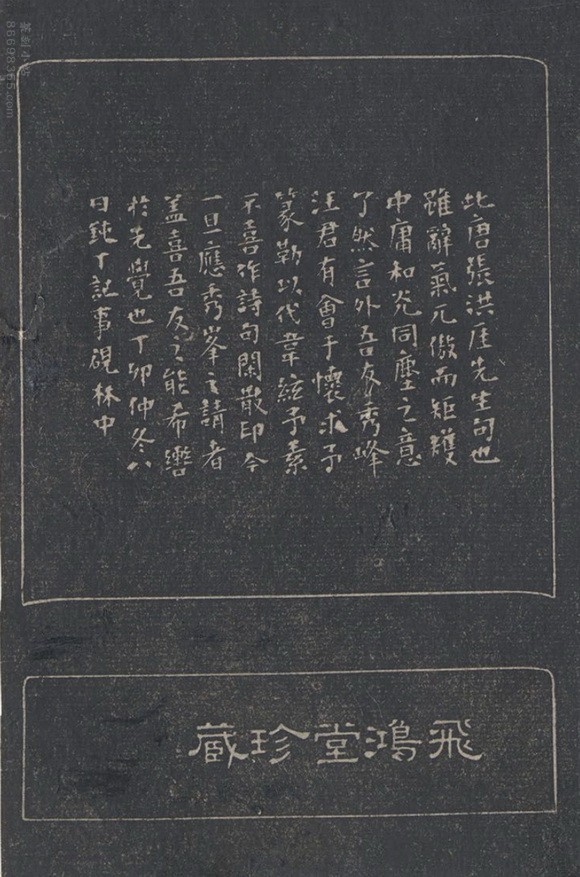 此唐張洪厓先生句也
雖辭氣兀傲而矩矱
中庸和光同塵之意
了然言外吾友秀峰
汪君有會于懷求予
篆勒以代韋絃予素
不喜作詩句閑散印今
一旦應秀峯之請者
盖喜吾友之能希轡
於先覺也丁卯仲冬八
日鈍丁記事硯林中
飛鴻堂珍藏
篆刻小站
86698365.com